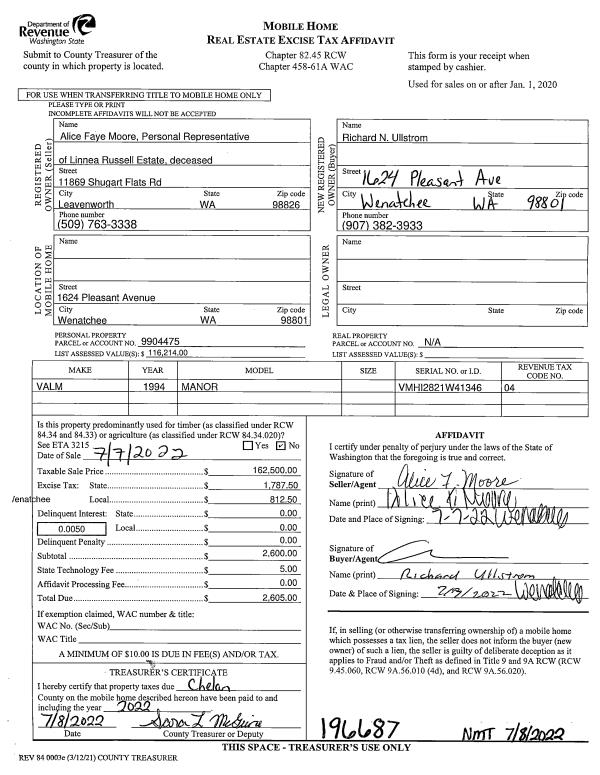 Department of
Revenue
Washington State
MOBILE HOME
REAL ESTATE EXCISE TAX AFFIDAVIT
Submit to County Treasurer of the
county in which property is located.
Chapter 82.45 RCW
Chapter 458-61A WAC
This form is your receipt when
stamped by cashier.
Used for sales on or after Jan. 1, 2020
FOR USE WHEN TRANSFERRING TITLE TO MOBILE HOME ONLY
PLEASE TYPE OR PRINT
INCOMPLETE AFFIDAVITS WILL NOT BE ACCEPTED
REGISTERED OWNER (Seller)
Name
Alice Faye Moore, Personal Representative
of Linnea Russell Estate, deceased
Street
11869 Shugart Flats Rd
City State Zip code
Leavenworth WA 98826
Phone number
(509) 763-3338
NEW REGISTERED OWNER (Buyer)
Name
Richard N. Ullstrom
Street 1624 Pleasant Ave
City State Zip code
Wenatchee WA 98801
Phone number
(907) 382-3933
LOCATION OF MOBILE HOME
Name
Street
1624 Pleasant Avenue
City State Zip code
Wenatchee WA 98801
LEGAL OWNER
Name
Street
City State Zip code
PERSONAL PROPERTY
PARCEL or ACCOUNT NO. 9904475
LIST ASSESSED VALUE(S): $ 116,214.00
REAL PROPERTY
PARCEL or ACCOUNT NO. N/A
LIST ASSESSED VALUE(S): $
MAKE YEAR MODEL SIZE SERIAL NO. or I.D. REVENUE TAX CODE NO.
VALM 1994 MANOR VMHI2821W41346 04
Is this property predominantly used for timber (as classified under RCW
84.34 and 84.33) or agriculture (as classified under RCW 84.34.020)?
See ETA 3215 Yes ✓ No
Date of Sale 7/7/2022
Taxable Sale Price $ 162,500.00
Excise Tax: State $ 1,787.50
/enatchee Local $ 812.50
Delinquent Interest: State $ 0.00
0.0050 Local $ 0.00
Delinquent Penalty $ 0.00
Subtotal $ 2,600.00
State Technology Fee $ 5.00
Affidavit Processing Fee $ 0.00
Total Due $ 2,605.00
If exemption claimed, WAC number & title:
WAC No. (Sec/Sub)
WAC Title
A MINIMUM OF $10.00 IS DUE IN FEE(S) AND/OR TAX.
TREASURER'S CERTIFICATE
I hereby certify that property taxes due Chelan
County on the mobile home described hereon have been paid to and
including the year 2022
7/8/2022 Sara L McGuire
Date County Treasurer or Deputy
AFFIDAVIT
I certify under penalty of perjury under the laws of the State of
Washington that the foregoing is true and correct.
Signature of
Seller/Agent Alice F. Moore
Name (print) Alice F. Moore
Date and Place of Signing: 7-7-22 Wenatchee
Signature of
Buyer/Agent
Name (print) Richard Ullstrom
Date & Place of Signing: Wenatchee
If, in selling (or otherwise transferring ownership of) a mobile home
which possesses a tax lien, the seller does not inform the buyer (new
owner) of such a lien, the seller is guilty of deliberate deception as it
applies to Fraud and/or Theft as defined in Title 9 and 9A RCW (RCW
9.45.060, RCW 9A.56.010 (4d), and RCW 9A.56.020).
196687 NMT 7/8/2022
THIS SPACE - TREASURER'S USE ONLY
REV 84 0003e (3/12/21) COUNTY TREASURER